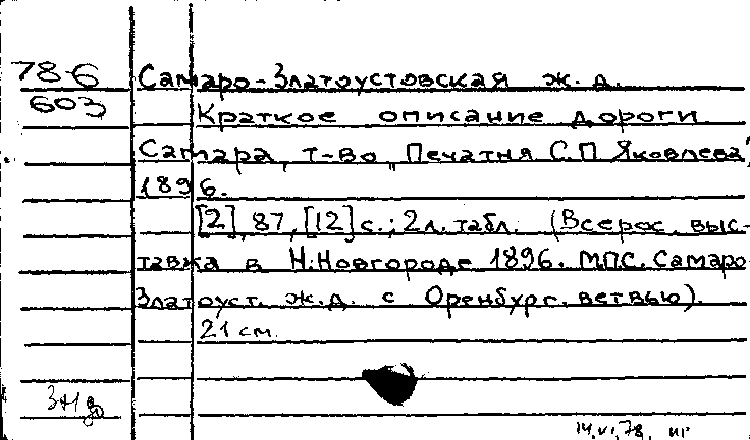 78-6
603
Самаро-Златоустовская ж.д.
Краткое описание дороги
Самара, т-во "Печатня С.П Яковлева",
1896.
[2], 87, [12] с.; 2 л. табл. (Всерос. выс-
тавка в Н.Новгороде 1896. МПС. Самаро
Златоуст. ж.д. с Оренбург. ветвью).
21 см.
14.VI.78.